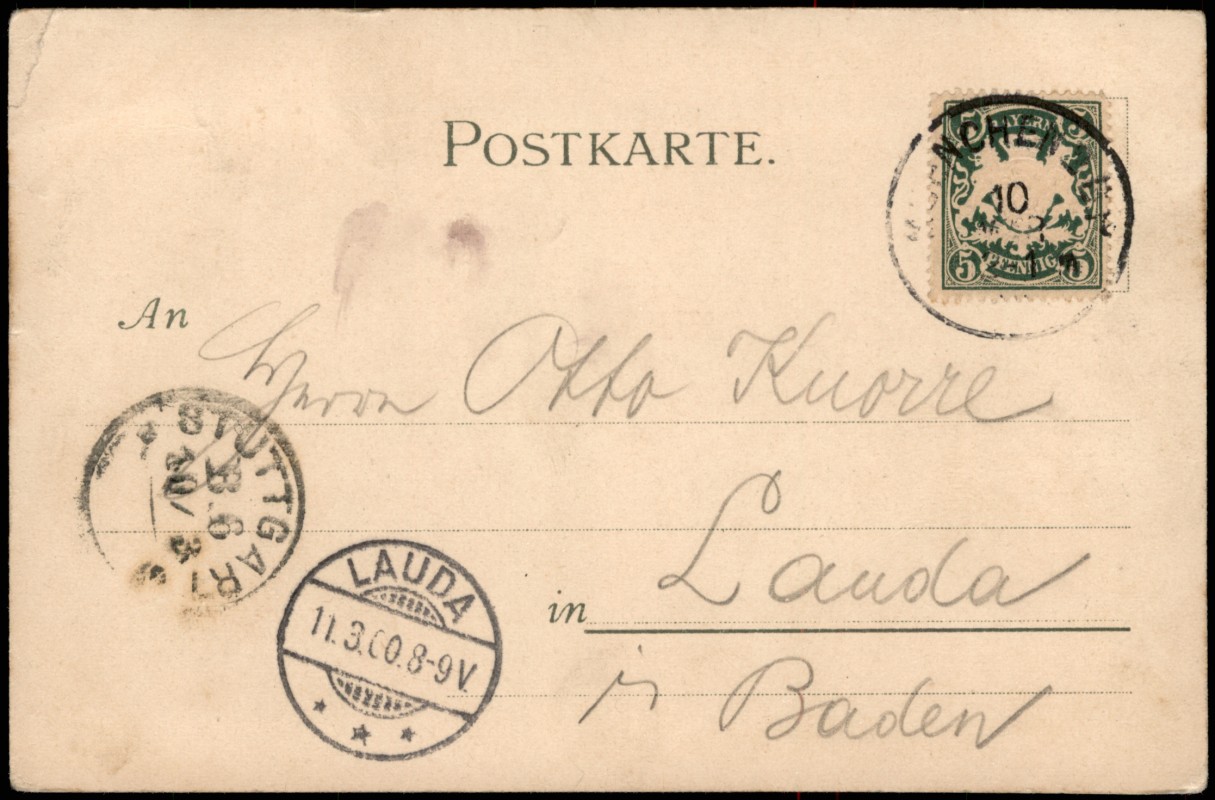 POSTKARTE.
5 BAYERN 5
MÜNCHEN
10
1
5 PFENNIG 5
An Herrn Otto Knorre
STUTTGART
LAUDA
11.3.00.8-9V.
in Lauda
in Baden